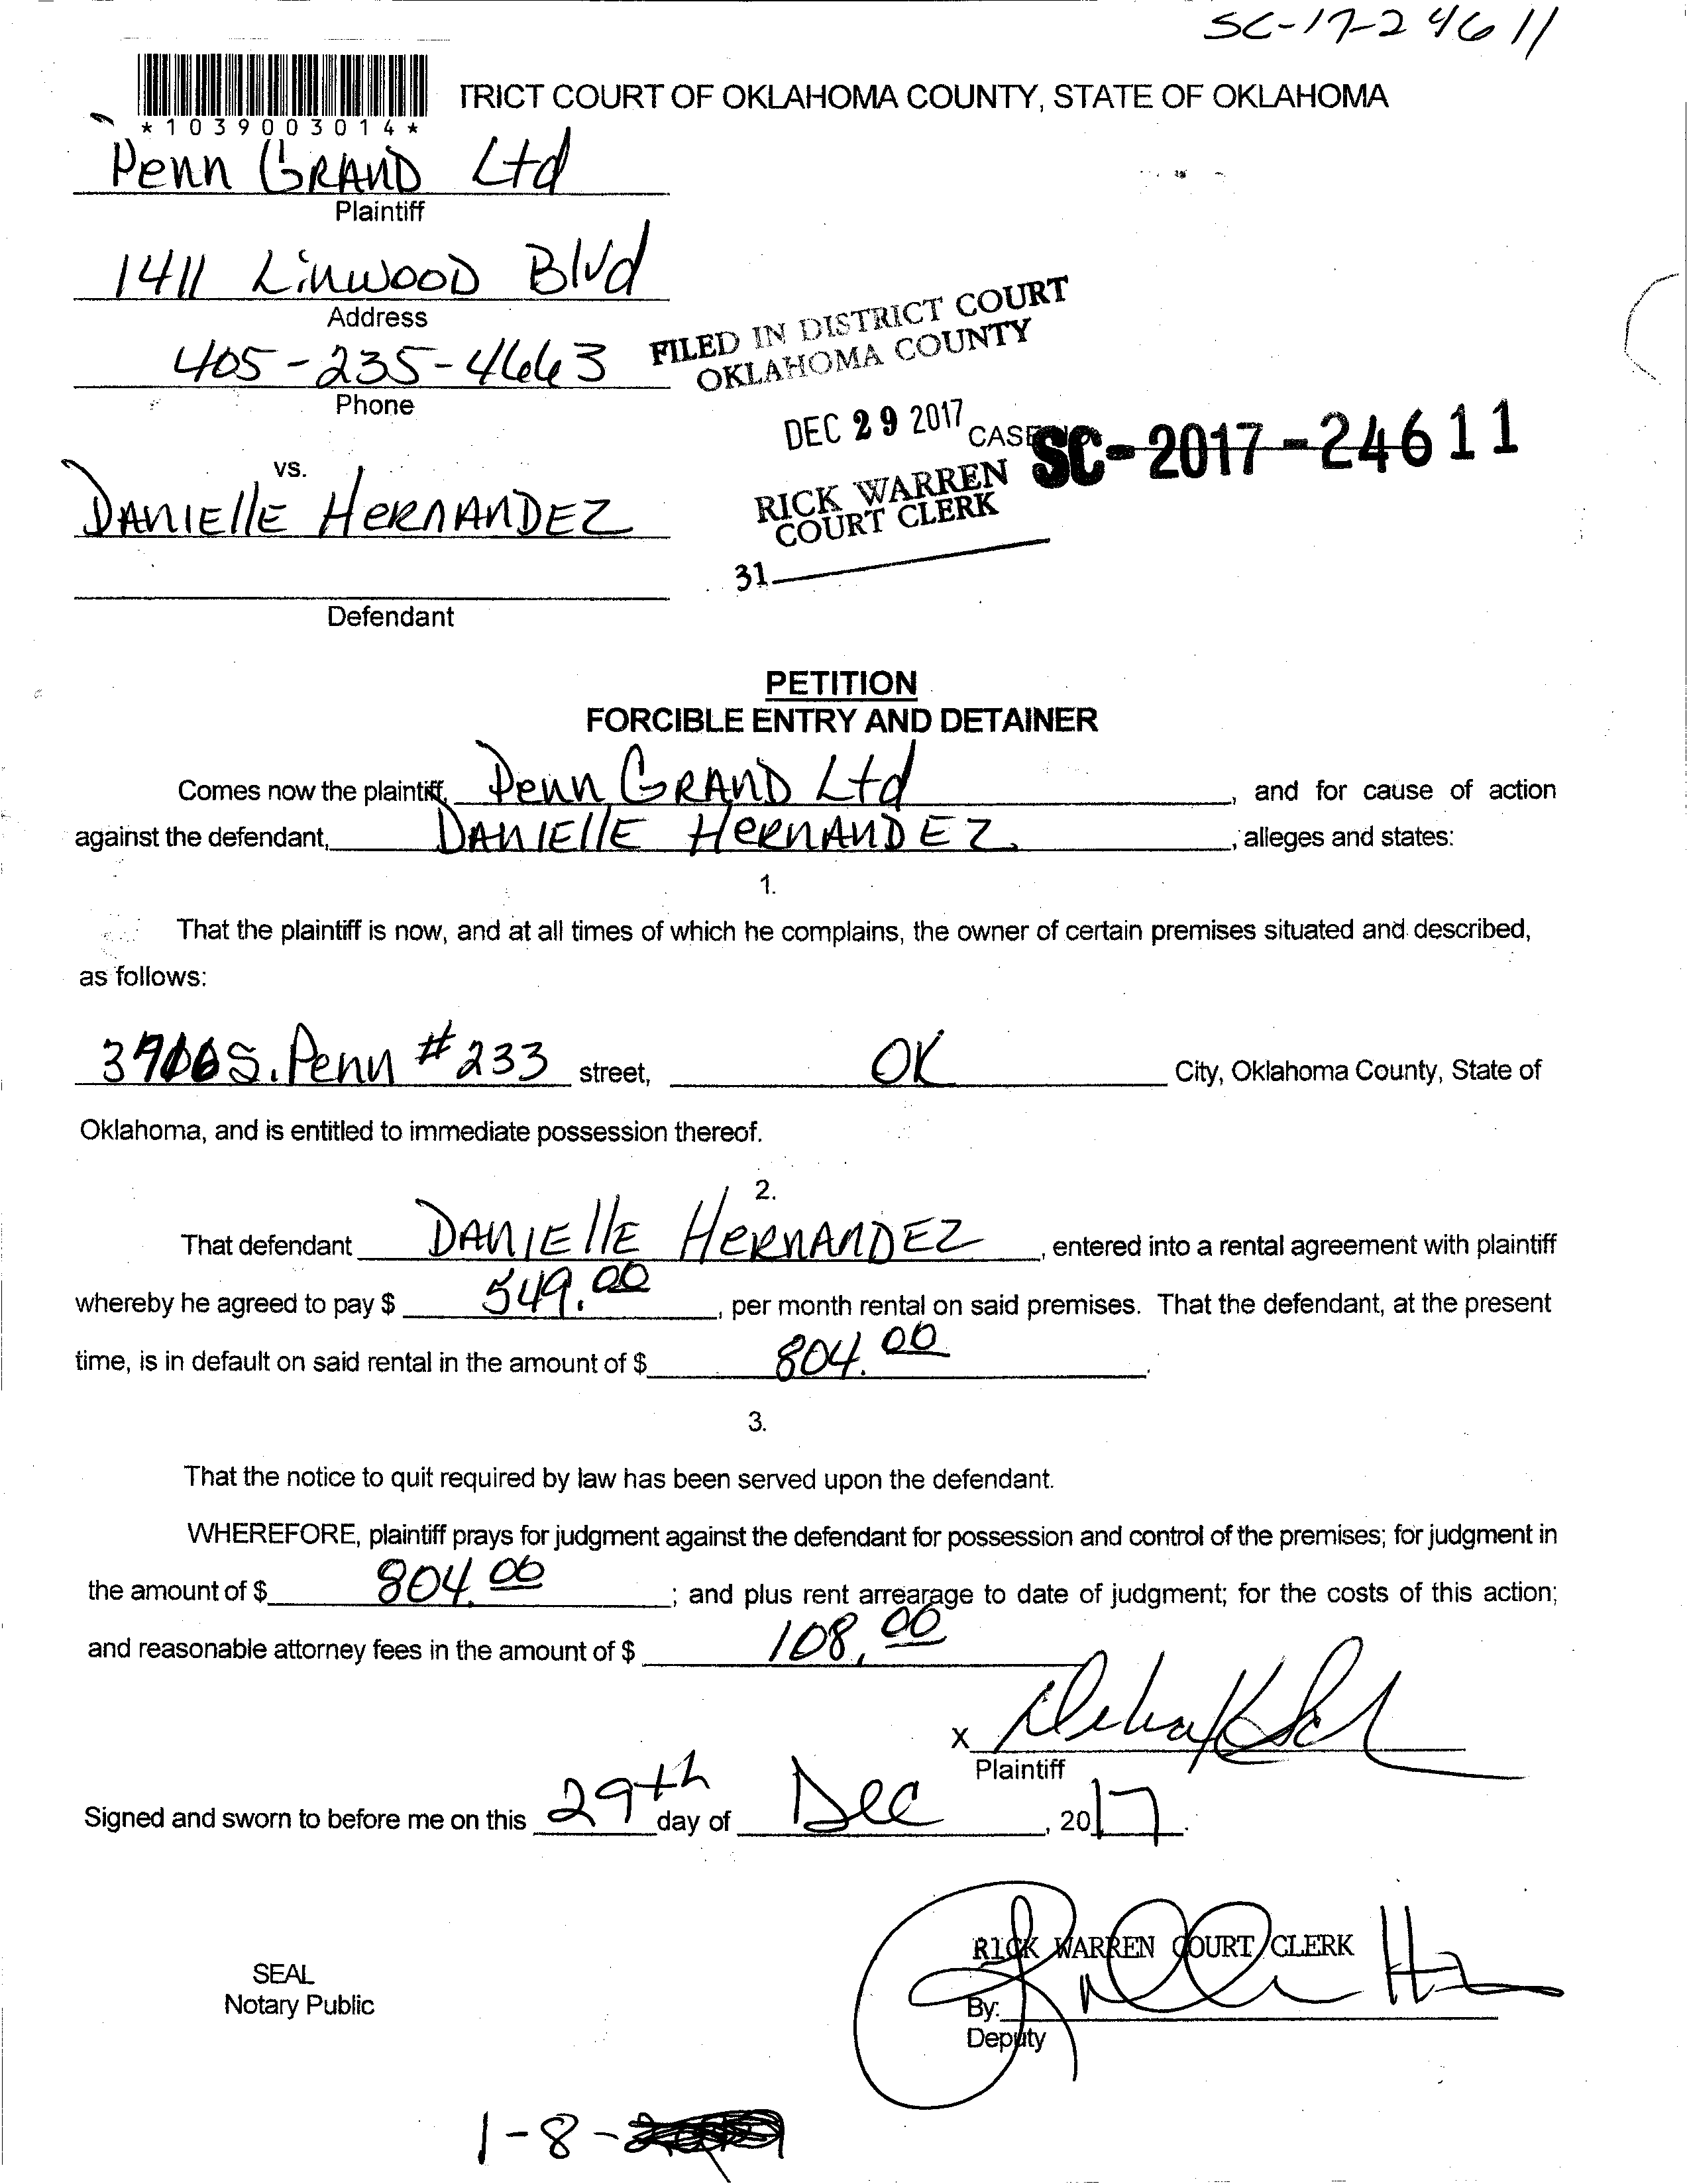 SC-17-24611
TRICT COURT OF OKLAHOMA COUNTY, STATE OF OKLAHOMA
*1039003014*
Penn GRAND Ltd
Plaintiff
1411 LinwooD Blvd
Address
405-235-4663
Phone
FILED IN DISTRICT COURT
OKLAHOMA COUNTY
DEC 29 2017
CASE SC-2017-24611
RICK WARREN
COURT CLERK
31
vs.
DANIEllE HERNANDEZ
Defendant
PETITION
FORCIBLE ENTRY AND DETAINER
Comes now the plaintiff, Penn GRAND Ltd, and for cause of action
against the defendant, DANIEllE HERNANDEZ, alleges and states:
1.
That the plaintiff is now, and at all times of which he complains, the owner of certain premises situated and described,
as follows:
S. Penn #233 street, OK City, Oklahoma County, State of
Oklahoma, and is entitled to immediate possession thereof.
2.
That defendant DANIEllE HERNANDEZ, entered into a rental agreement with plaintiff
whereby he agreed to pay $ 549.00, per month rental on said premises. That the defendant, at the present
time, is in default on said rental in the amount of $ 804.00.
3.
That the notice to quit required by law has been served upon the defendant.
WHEREFORE, plaintiff prays for judgment against the defendant for possession and control of the premises; for judgment in
the amount of $ 804.00; and plus rent arrearage to date of judgment; for the costs of this action;
and reasonable attorney fees in the amount of $ 108.00
X
Plaintiff
Signed and sworn to before me on this 29th day of Dec, 2017.
RICK WARREN COURT CLERK
SEAL
Notary Public
By:
Deputy
1-8-